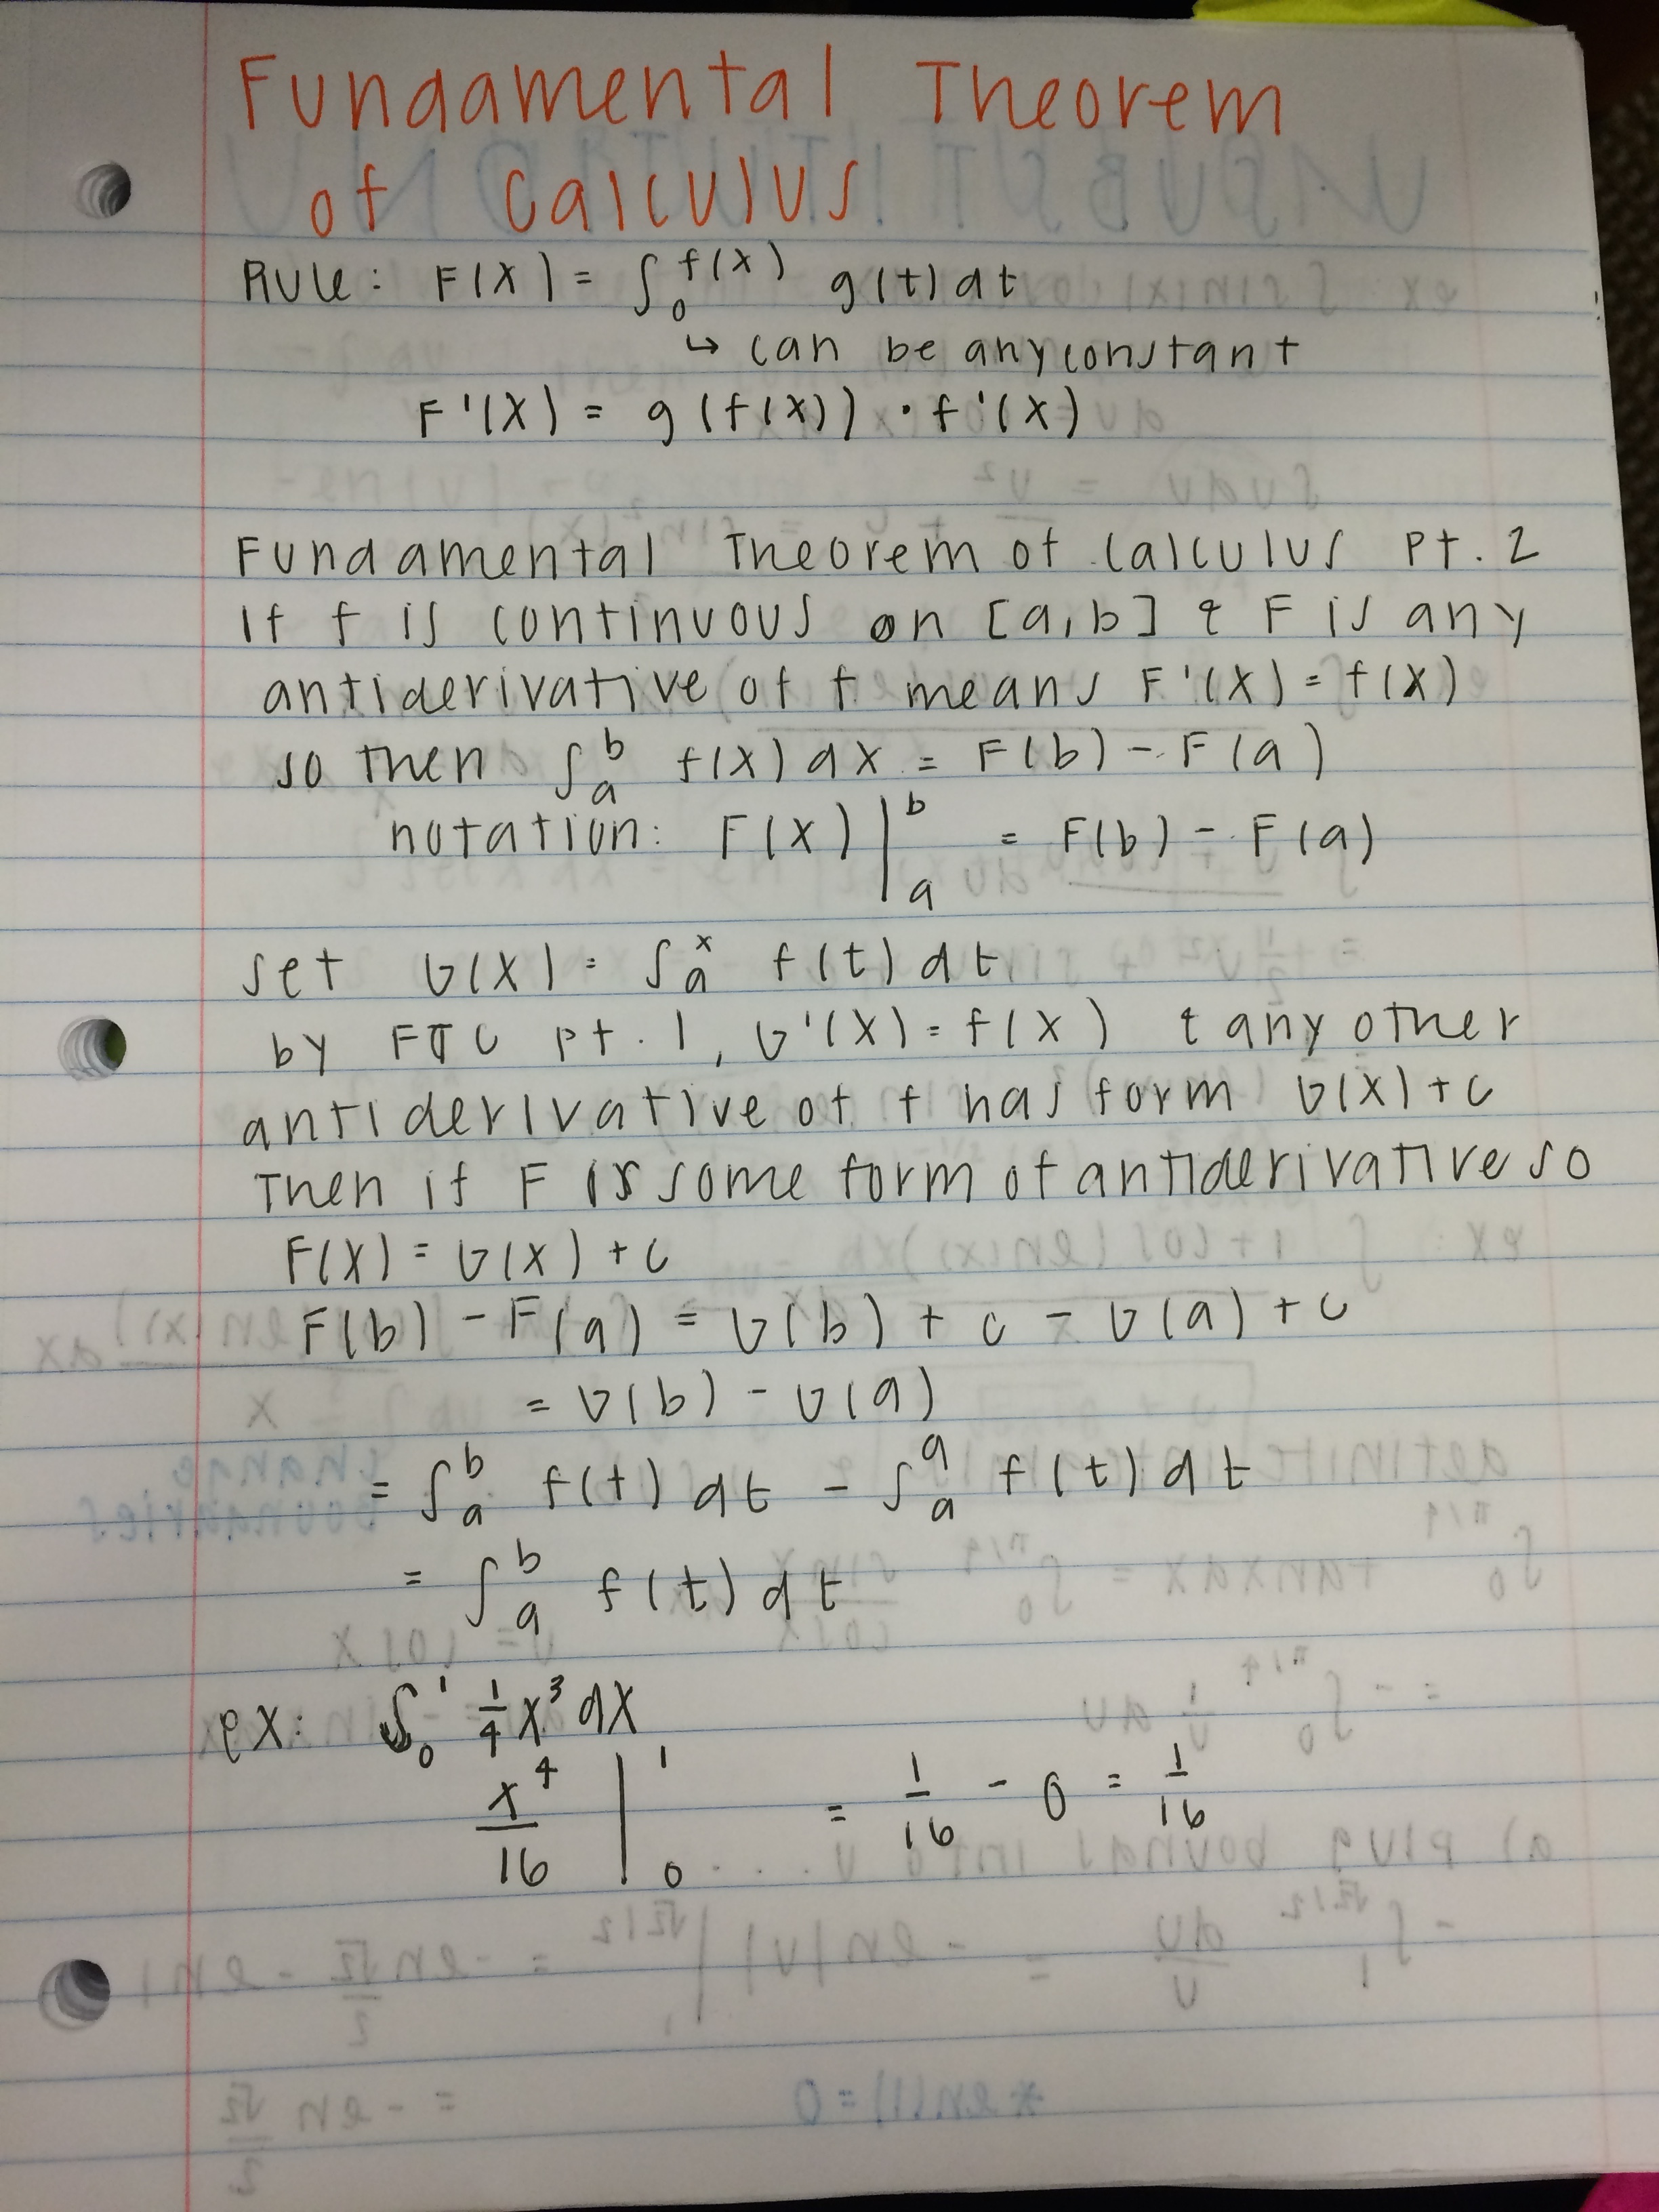 Fundamental Theorem
of Calculus
Rule: F(x) = ∫₀^f(x) g(t) dt
↳ can be any constant
F'(x) = g(f(x)) · f'(x)
Fundamental Theorem of Calculus Pt. 2
If f is continuous on [a,b] & F is any
antiderivative of f means F'(x) = f(x)
so then ∫ₐᵇ f(x) dx = F(b) - F(a)
notation: F(x) |ₐᵇ = F(b) - F(a)
set G(x) = ∫ₐˣ f(t) dt
by FTC pt. 1, G'(x) = f(x) & any other
antiderivative of f has form G(x) + C
Then if F is some form of antiderivative so
F(x) = G(x) + C
F(b) - F(a) = G(b) + C - G(a) + C
= G(b) - G(a)
= ∫ₐᵇ f(t) dt - ∫ₐᵃ f(t) dt
= ∫ₐᵇ f(t) dt
ex: ∫₀¹ 1/4 x³ dx
x⁴/16 |₀¹ = 1/16 - 0 = 1/16